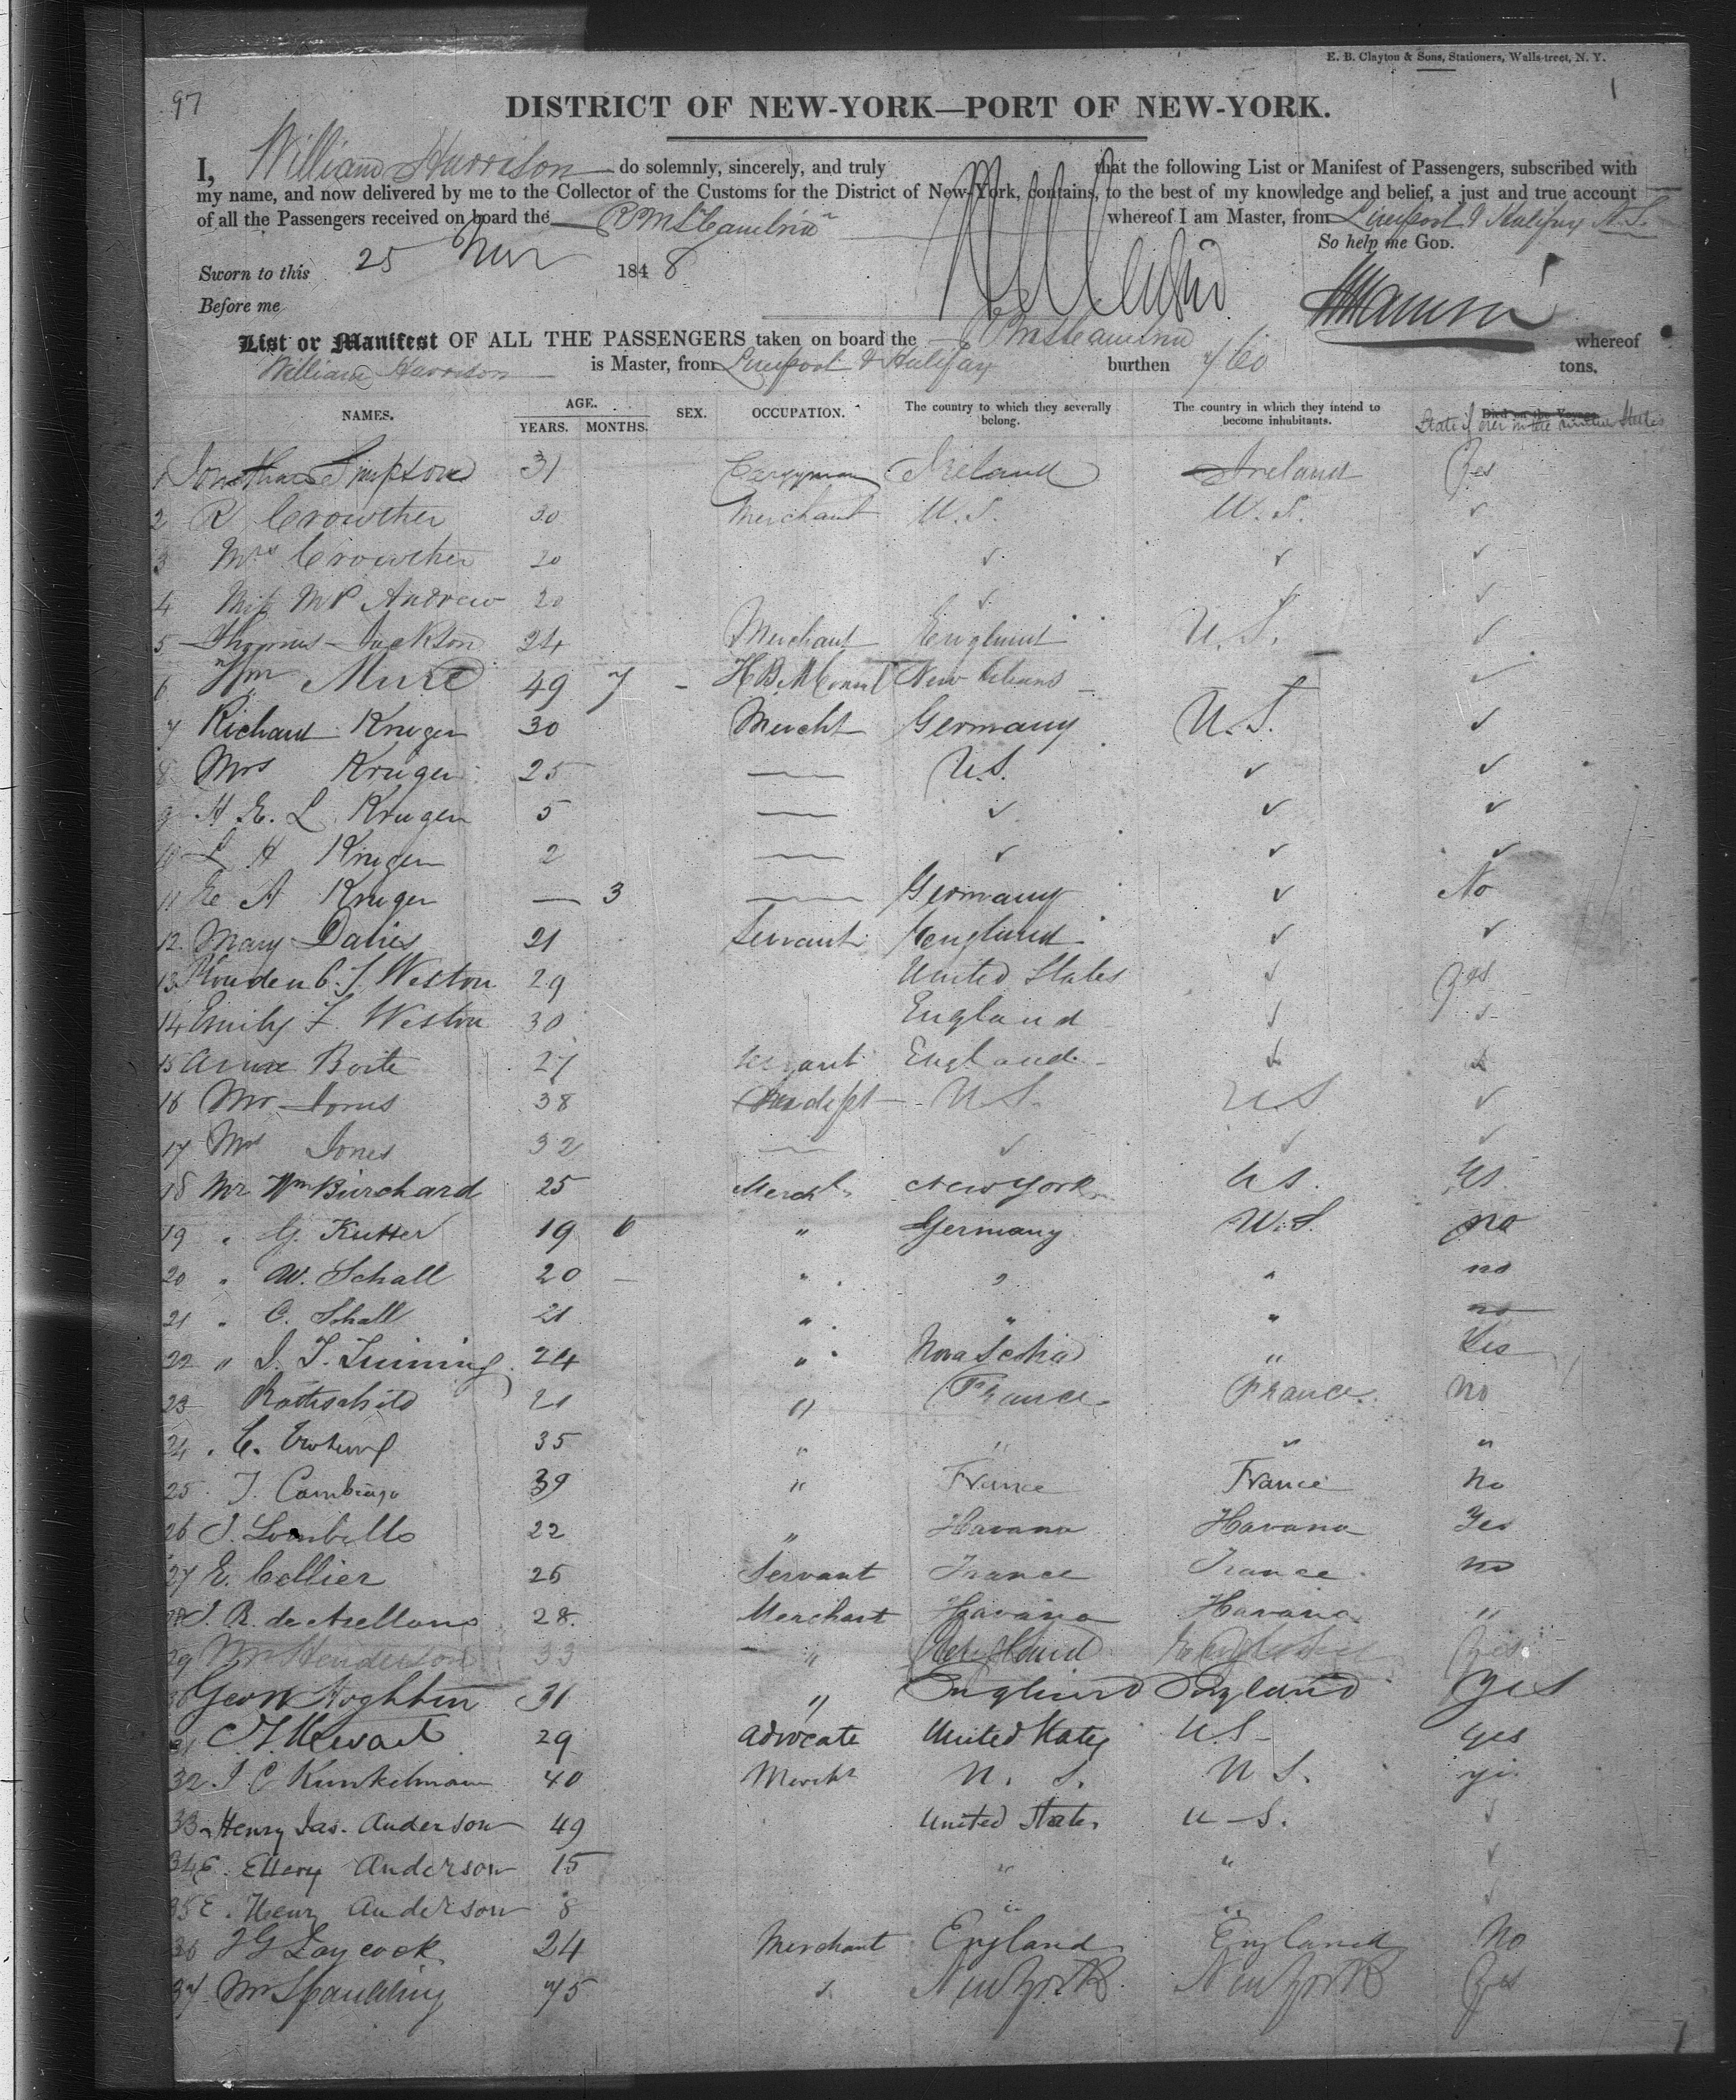 E. B. Clayton & Sons, Stationers, Walls-treet, N. Y.
97
1
DISTRICT OF NEW-YORK—PORT OF NEW-YORK.
I, William Harrison do solemnly, sincerely, and truly that the following List or Manifest of Passengers, subscribed with
my name, and now delivered by me to the Collector of the Customs for the District of New-York, contains, to the best of my knowledge and belief, a just and true account
of all the Passengers received on board the whereof I am Master, from Liverpool & Halifax N.S.
So help me GOD.
Sworn to this 25 1848
Before me
List or Manifest OF ALL THE PASSENGERS taken on board the whereof
William Harrison is Master, from Liverpool & Halifax burthen 760 tons.
NAMES. AGE. YEARS. MONTHS. SEX. OCCUPATION. The country to which they severally belong. The country in which they intend to become inhabitants. Died on the Voyage. State if ever in the United States
1 Jonathan Simpson 31 Clergyman Ireland Ireland Yes
2 R Crowther 30 Merchant U.S. U.S. ✓
3 Mrs Crowther 20 ✓ ✓ ✓
4 Miss Andrew 20 ✓ ✓ ✓
5 Thomas Jackson 24 Merchant England U.S. ✓
6 Wm Mure 49 7 - H B M Consul New Orleans - ✓
7 Richard Kruger 30 Mercht Germany U.S. ✓
8 Mrs Kruger 25 — U.S. ✓ ✓
9 H E. L Kruger 5 — ✓ ✓ ✓
10 L H Kruger 2 — ✓ ✓ ✓
11 E A Kruger — 3 — Germany ✓ No
12 Mary Davies 21 Servant England ✓ ✓
13 Weston 29 United States ✓ Yes
14 Emily F. Weston 30 England ✓ ✓
15 Boite 27 Servant England ✓ ✓
16 Mr Jones 38 U.S. U.S. ✓
17 Mrs Jones 32 — ✓ ✓ ✓
18 Mr Wm Burchard 25 Mercht New York U.S. Yes
19 " G. Kutter 19 6 " Germany U.S. no
20 " W. Schall 20 — " " " no
21 " C. Schall 21 " " " no
22 " J. T. Twining 24 " Nova Scotia " Yes
23 Rothschild 21 " France France No
24 " E. 35 " " " "
25 J. 39 " France France No
26 J. Lombillo 22 " Havana Havana Yes
27 E. Collier 26 Servant France France no
28 J. R. de Arellano 28 Merchant Havana Havana "
29 Mr Henderson 33 " England Yes
30 Hoghton 31 " England England Yes
31 29 Advocate United States U.S. yes
32 J C Kunkelman 40 Mercht U. S. U S. yes
33 Henry Jas. Anderson 49 United States U-S. ✓
34 E. Ellery Anderson 15 " " ✓
35 E. Henry Anderson 8 " " ✓
36 J G Laycock 24 Merchant England England No
37 Mr Spaulding 45 New York New York Yes